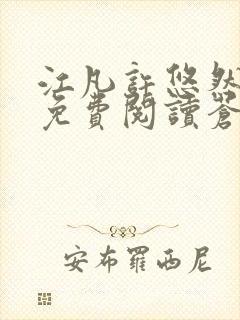 江凡許悠然
免費閱讀蒼
安布羅西尼